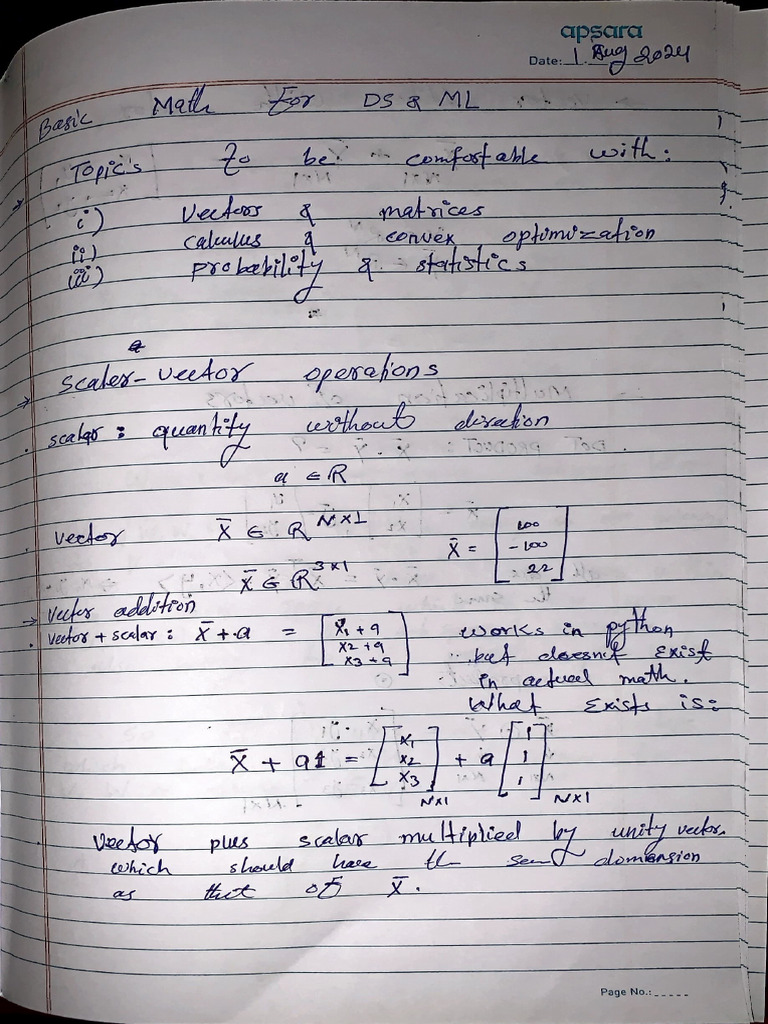 apsara
Date: 1 Aug 2024
Basic Math For DS & ML
Topics to be comfortable with:
i) Vectors & matrices
ii) calculus & convex optimization
iii) probability & statistics
scaler-vector operations
scalar: quantity without direction
a ∈ R
vector X̄ ∈ R^{N×1} X̄ = [100 -100 22]
X̄ ∈ R^{3×1}
→ vector addition
vector + scalar: X̄ + a = [x1 + a x2 + a x3 + a] works in python
but doesnet exist
in actual math.
What exists is:
X̄ + a1 = [x1 x2 x3]N×1 + a [1 1 1]N×1
vector plus scalar multiplied by unity vector.
which should have the same domension
as that of X̄.
Page No.: